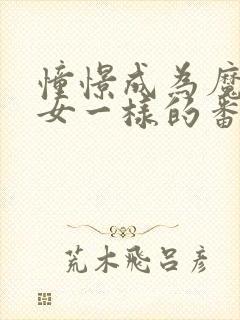 憧憬成為魔
女一樣的番
荒木飛呂彥